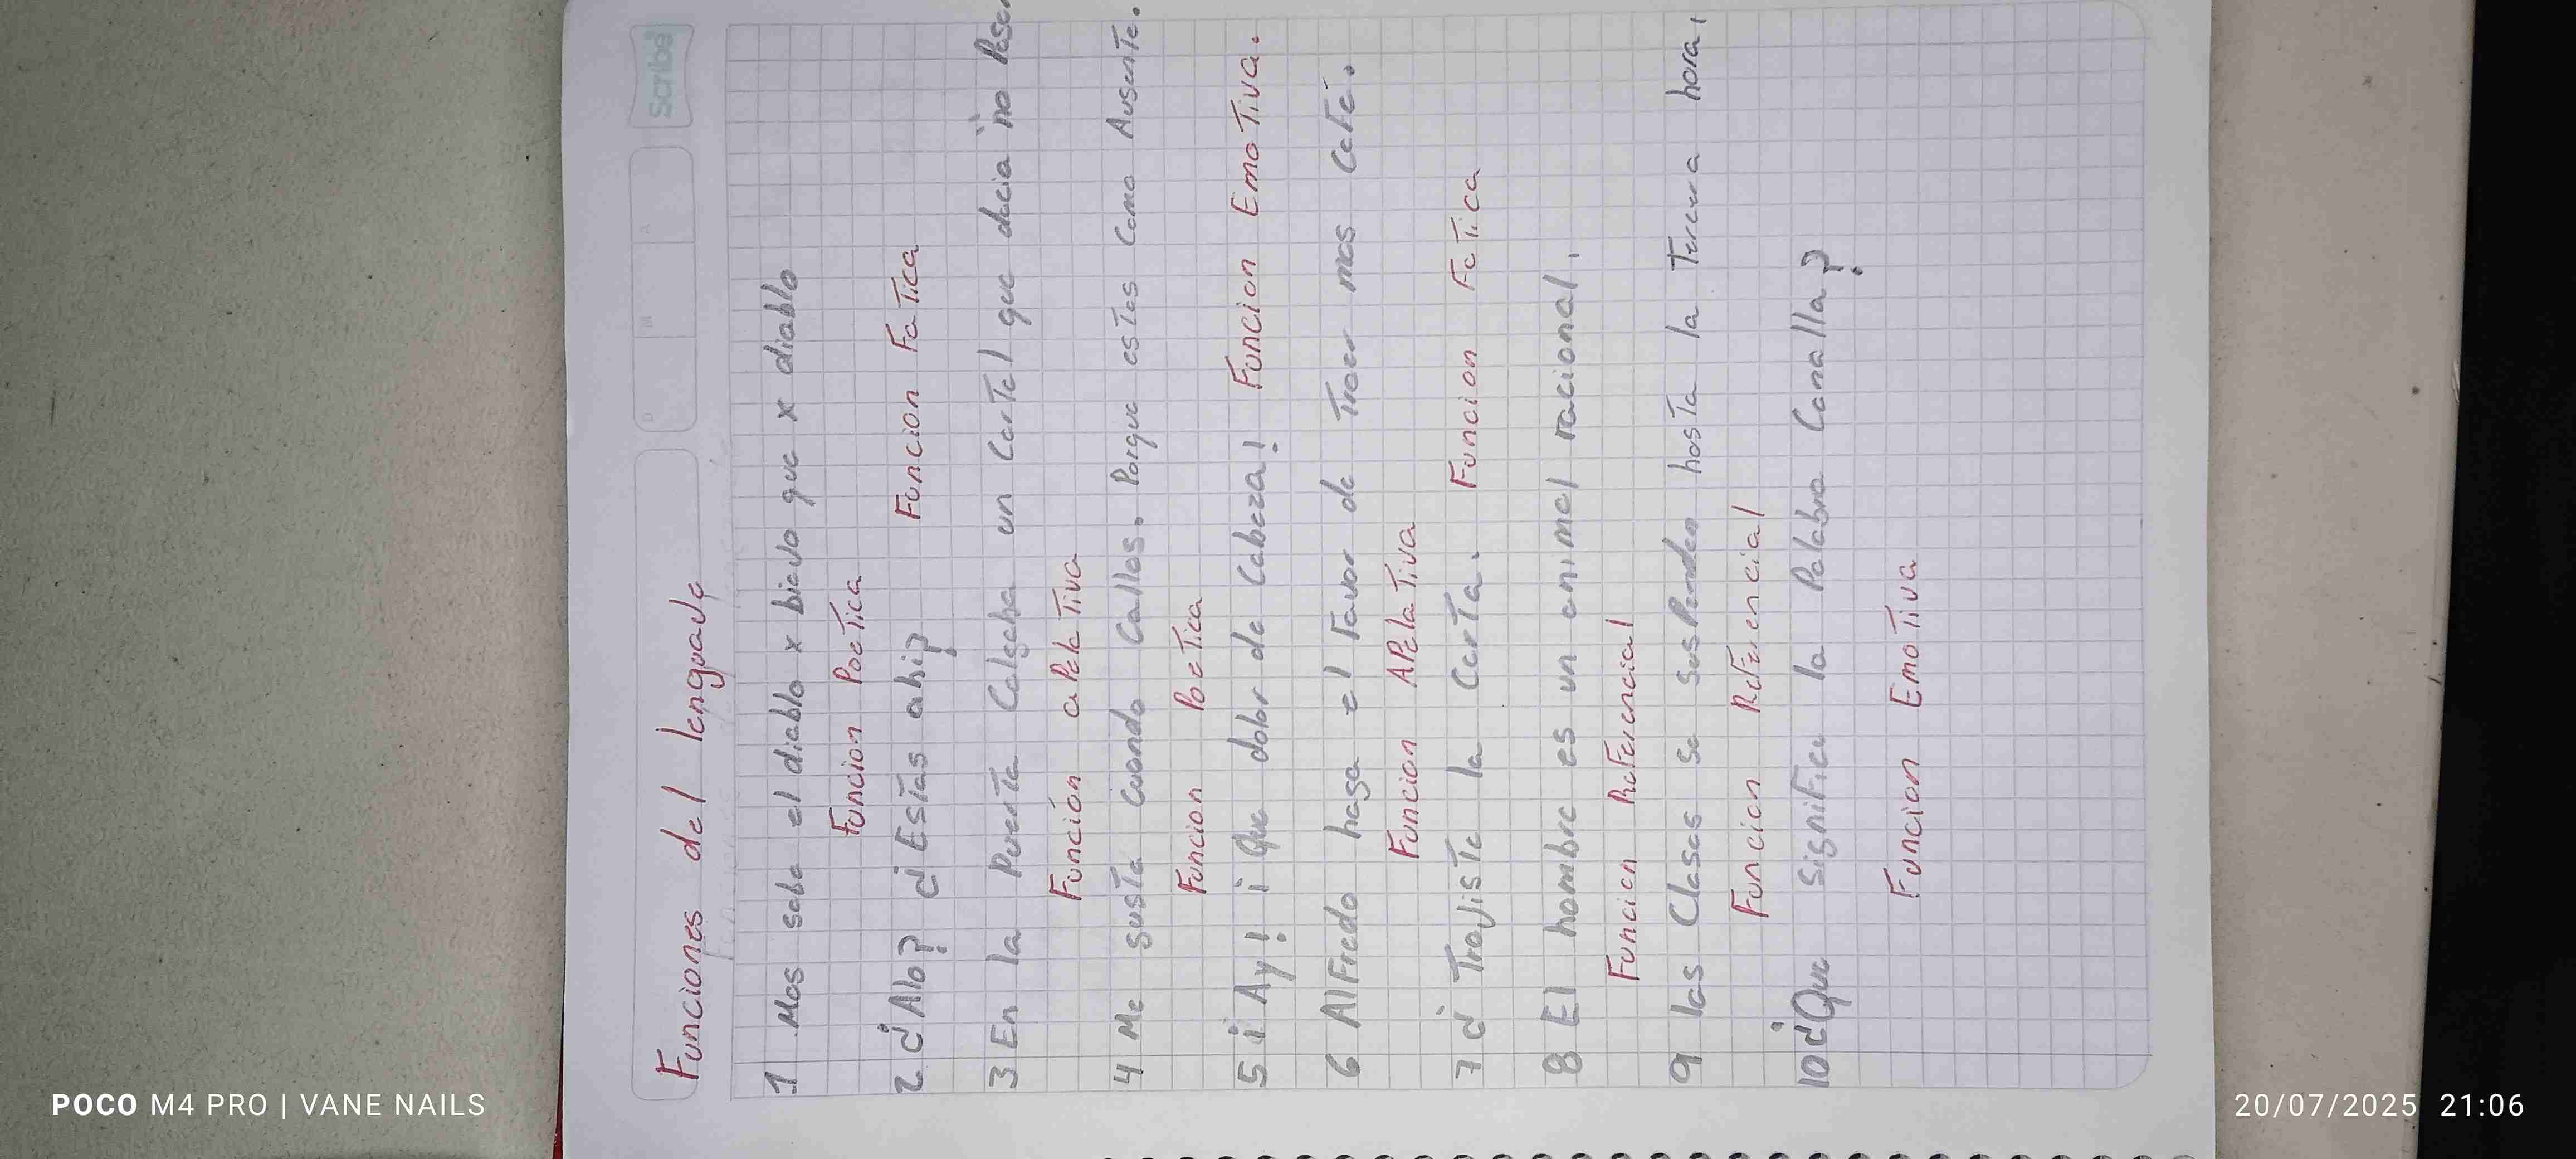 Scribe
D M A
Funciones del lenguaje
1 Mas sabe el diablo x biejo que x diablo
Funcion Poetica
2 ¿Alo? ¿Estas ahi? Funcion Fatica
3 En la Puerta Colgaba un Cartel que decia "no Pasar
Función apelativa
4 Me gusta cuando Callas. Porque estas Como Ausente.
Funcion Poetica
5 ¡Ay! ¡Que dolor de Cabeza! Funcion Emotiva.
6 Alfredo haga el favor de Traer mas Café.
Funcion APelativa
7 ¿Trajiste la Carta. Funcion Fatica
8 El hombre es un animal racional.
Funcion Referencial
9 las Clases se susPenden hasta la Tercera hora,
Funcion Referencial
10 ¿Que significa la Palabra Canalla?
Funcion Emotiva
POCO M4 PRO | VANE NAILS
20/07/2025 21:06